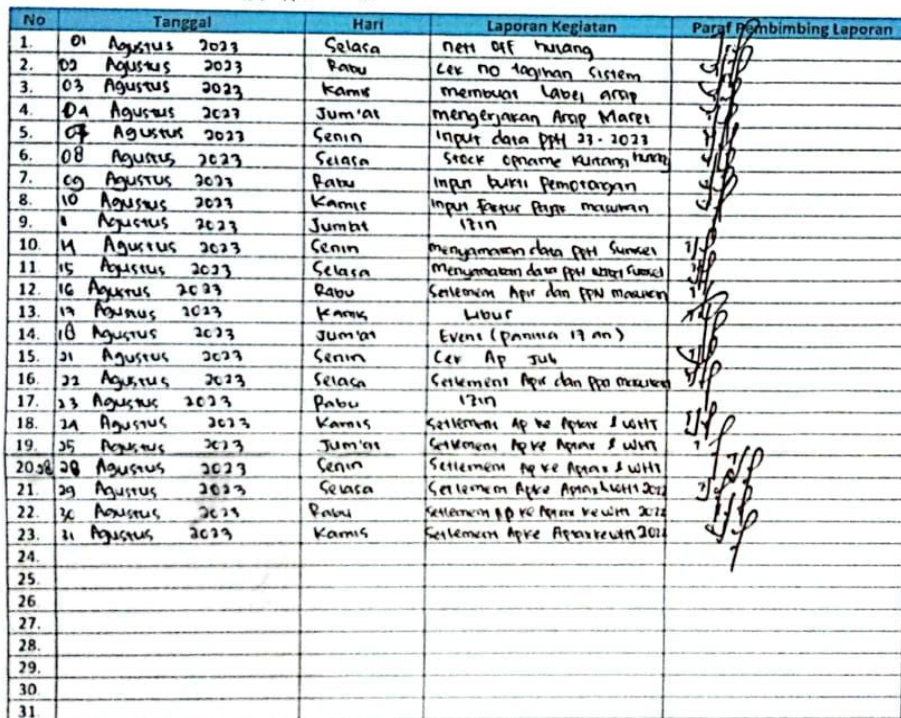 No Tanggal Hari Laporan Kegiatan Paraf Pembimbing Laporan
1. 01 Agustus 2023 Selasa nett off hutang
2. 02 Agustus 2023 Rabu Cek no tagihan sistem
3. 03 Agustus 2023 Kamis membuat Label arsip
4. 04 Agustus 2023 Jum'at mengerjakan Arsip Maret
5. 07 Agustus 2023 Senin Input data PPH 23 - 2023
6. 08 Agustus 2023 Selasa Stock opname
7. 09 Agustus 2023 Rabu Input bukti Pemotongan
8. 10 Agustus 2023 Kamis Input Faktur Pajak masukan
9. Agustus 2023 Jumbat Izin
10. 14 Agustus 2023 Senin menyamakan data PPH Sumsel
11. 15 Agustus 2023 Selasa menyamakan data PPH Sumsel
12. 16 Agustus 2023 Rabu Setlement Apir dan PPN masukan
13. 17 Agustus 2023 Kamis Libur
14. 18 Agustus 2023 Jum'at Event (panitia 17 an)
15. 21 Agustus 2023 Senin Cek Ap
16. 22 Agustus 2023 Selasa Setlement Apir dan ppn masukan
17. 23 Agustus 2023 Rabu Izin
18. 24 Agustus 2023 Kamis Setlement Ap ke Aptax & WHT
19. 25 Agustus 2023 Jum'at Setlement Ap ke Aptax & WHT
20. 28 28 Agustus 2023 Senin Setlement Ap ke Aptax & WHT
21. 29 Agustus 2023 Selasa Setlement Ap ke Aptax & WHT 2022
22. 30 Agustus 2023 Rabu Setlement Ap ke Aptax ke WTH 2022
23. 31 Agustus 2023 Kamis Setlement Ap ke Aptax ke WTH 2022
24.
25.
26
27.
28.
29.
30.
31.